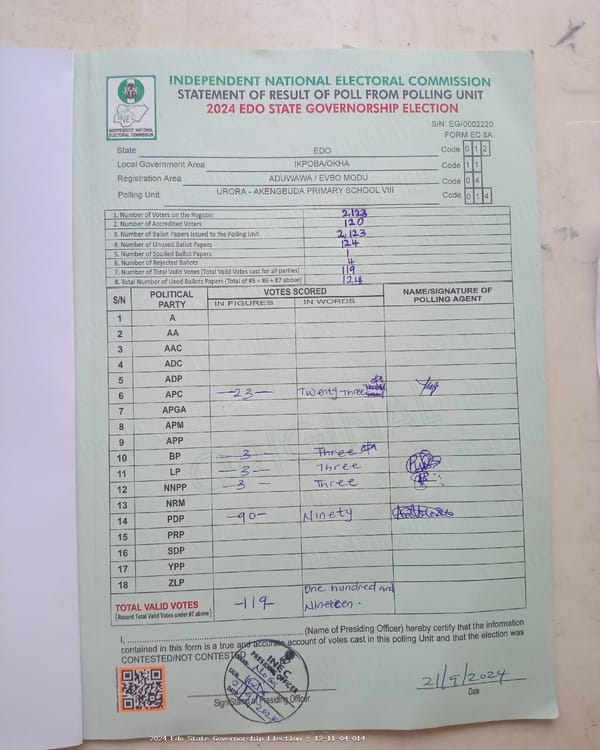 INDEPENDENT NATIONAL ELECTORAL COMMISSION
STATEMENT OF RESULT OF POLL FROM POLLING UNIT
2024 EDO STATE GOVERNORSHIP ELECTION
INEC
INDEPENDENT NATIONAL ELECTORAL COMMISSION
S/N: EG/0002220
FORM EC 8A
State EDO Code 0 1 2
Local Government Area IKPOBA/OKHA Code 1 1
Registration Area ADUWAWA / EVBO MODU Code 0 4
Polling Unit URORA - AKENGBUDA PRIMARY SCHOOL VIII Code 0 1 4
1. Number of Voters on the Register 2,123
2. Number of Accredited Voters 120
3. Number of Ballot Papers Issued to the Polling Unit 2,123
4. Number of Unused Ballot Papers 124
5. Number of Spoiled Ballot Papers 1
6. Number of Rejected Ballots 4
7. Number of Total Valid Votes (Total Valid Votes cast for all parties) 119
8. Total Number of Used Ballots Papers (Total of #5 + #6 + #7 above) 124
S/N POLITICAL PARTY VOTES SCORED NAME/SIGNATURE OF POLLING AGENT
IN FIGURES IN WORDS
1 A
2 AA
3 AAC
4 ADC
5 ADP
6 APC -23- Twenty three
7 APGA
8 APM
9 APP
10 BP -3- Three
11 LP -3- Three
12 NNPP -3- Three
13 NRM
14 PDP -90- Ninety
15 PRP
16 SDP
17 YPP
18 ZLP
TOTAL VALID VOTES (Record Total Valid Votes under #7 above) -119 One hundred and Nineteen.
I, (Name of Presiding Officer) hereby certify that the information
contained in this form is a true and accurate account of votes cast in this polling Unit and that the election was
CONTESTED/NOT CONTESTED
INEC
PRESIDING OFFICER
21/9/2024
Sign/Stamp of Presiding Officer
21/9/2024
Date
2024 Edo State Governorship Election : 12-11-04-014